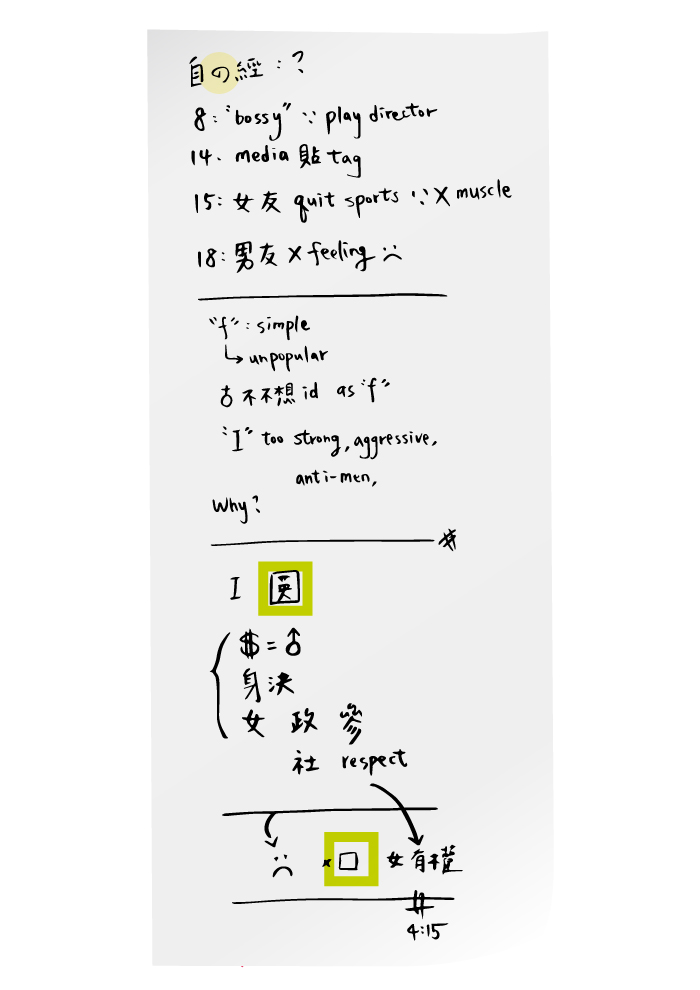 自の經:?
8:"bossy" ∵ play director
14. media 貼 tag
15:女友 quit sports ∵ X muscle
18:男友 X feeling :(
"f":simple
↳ unpopular
♂不不想 id as "f"
"I" too strong, aggressive,
anti-men,
Why?
#
I 英
$=♂
身決
女 政 參
社 respect
:( x□ 女有權
#
4:15